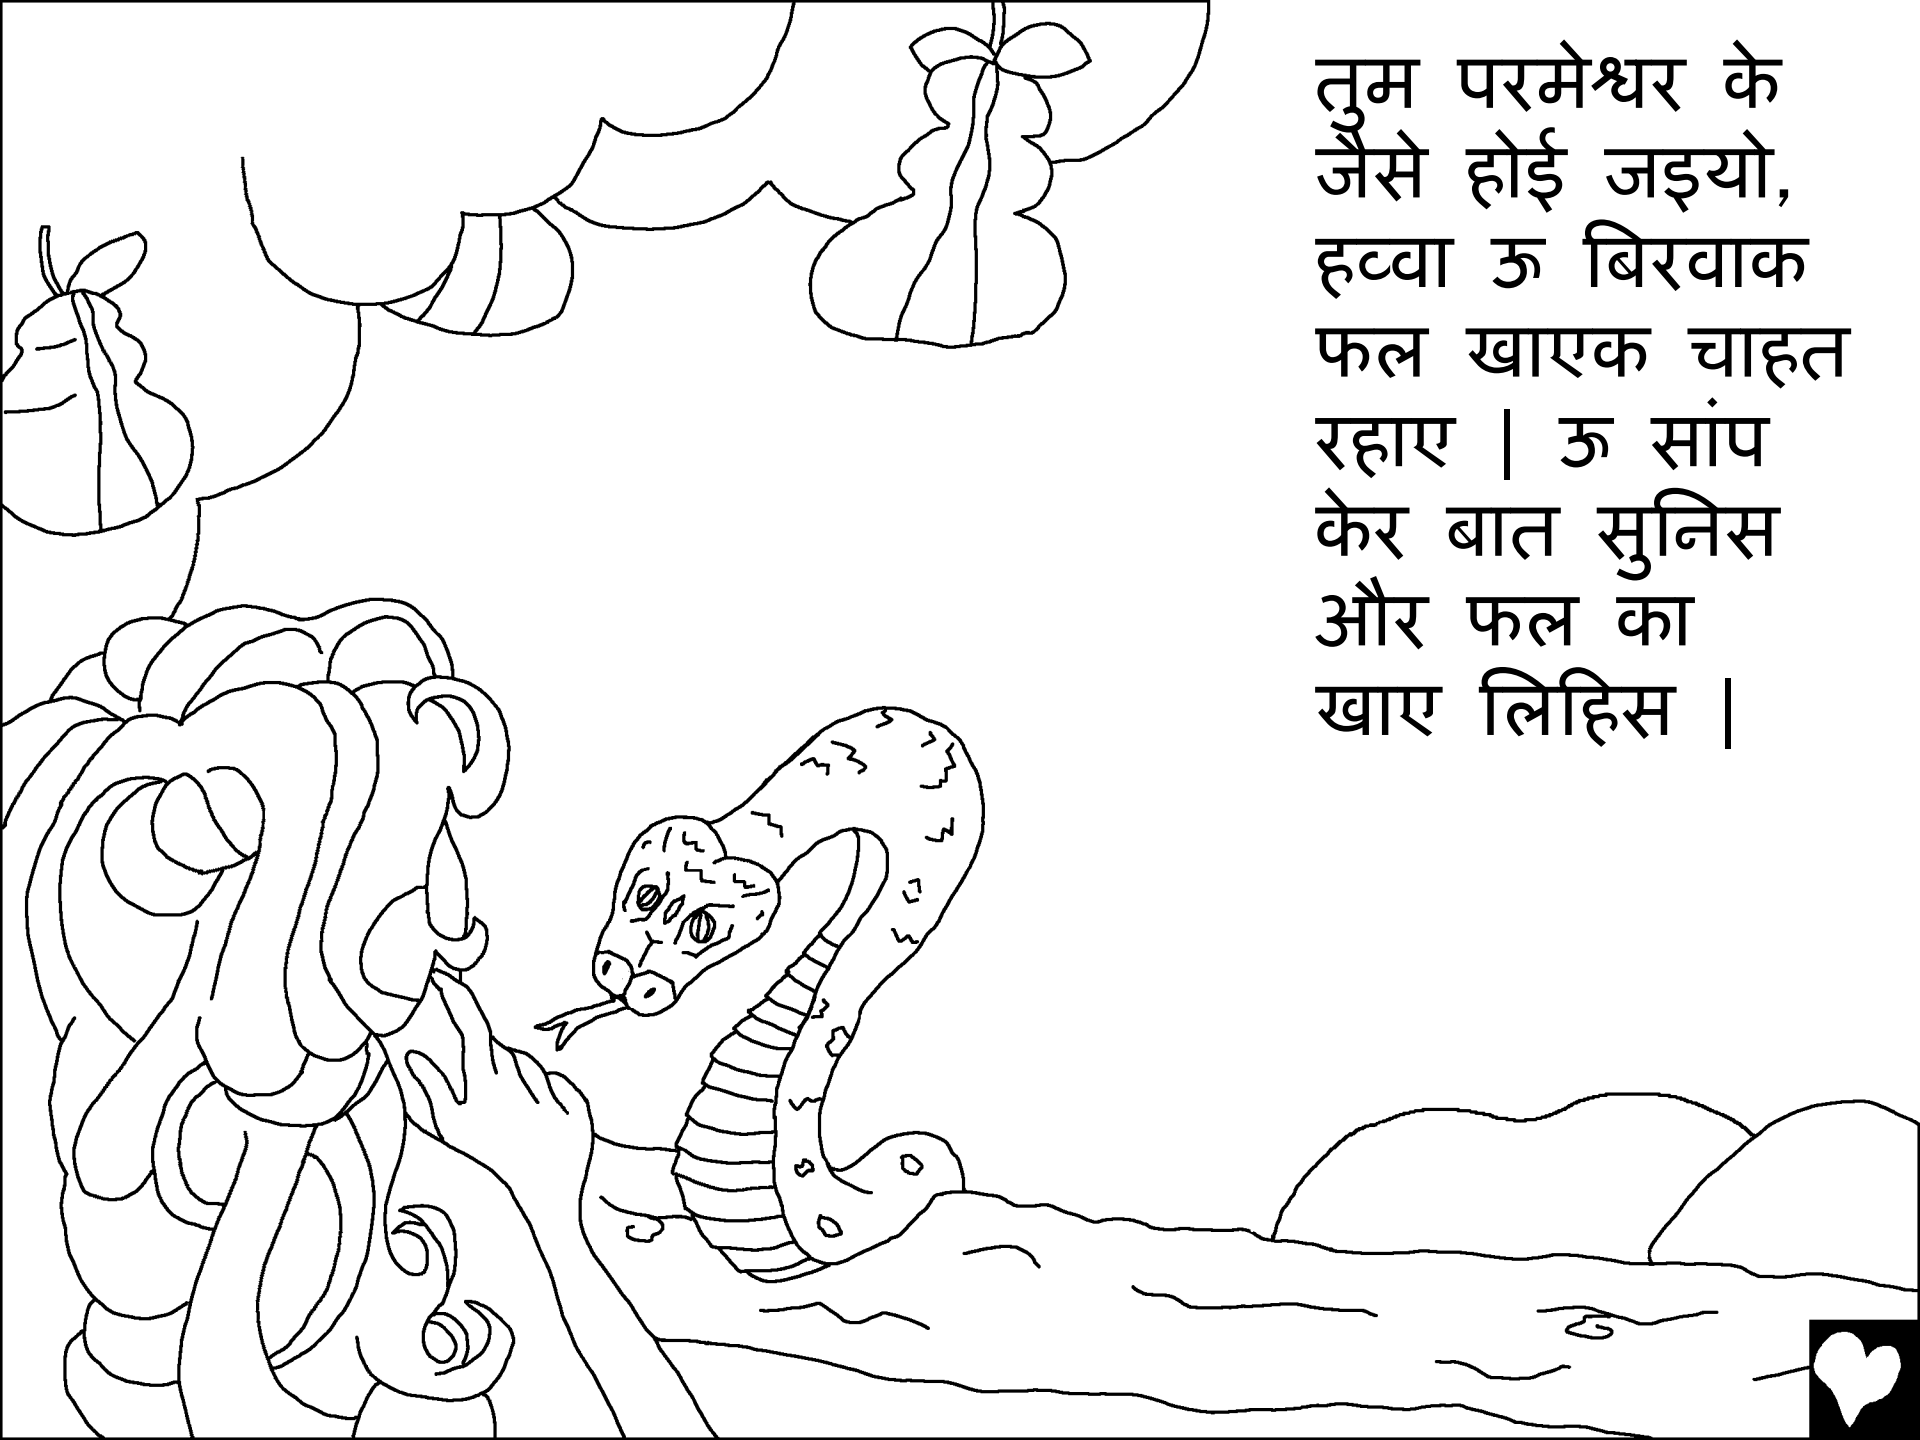 तुम परमेश्वर के
जैसे होई जइयो,
हव्वा ऊ बिरवाक
फल खाएक चाहत
रहाए | ऊ सांप
केर बात सुनिस
और फल का
खाए लिहिस |